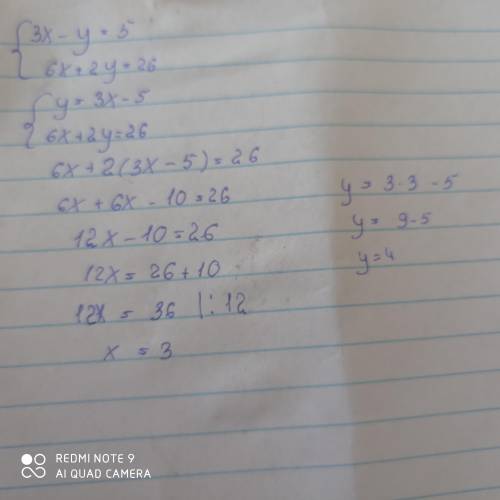 3x - y = 5
6x + 2y = 26
y = 3x - 5
6x + 2y = 26
6x + 2(3x - 5) = 26
6x + 6x - 10 = 26
12x - 10 = 26
12x = 26 + 10
12x = 36 |: 12
x = 3
y = 3·3 - 5
y = 9 - 5
y = 4
REDMI NOTE 9
AI QUAD CAMERA